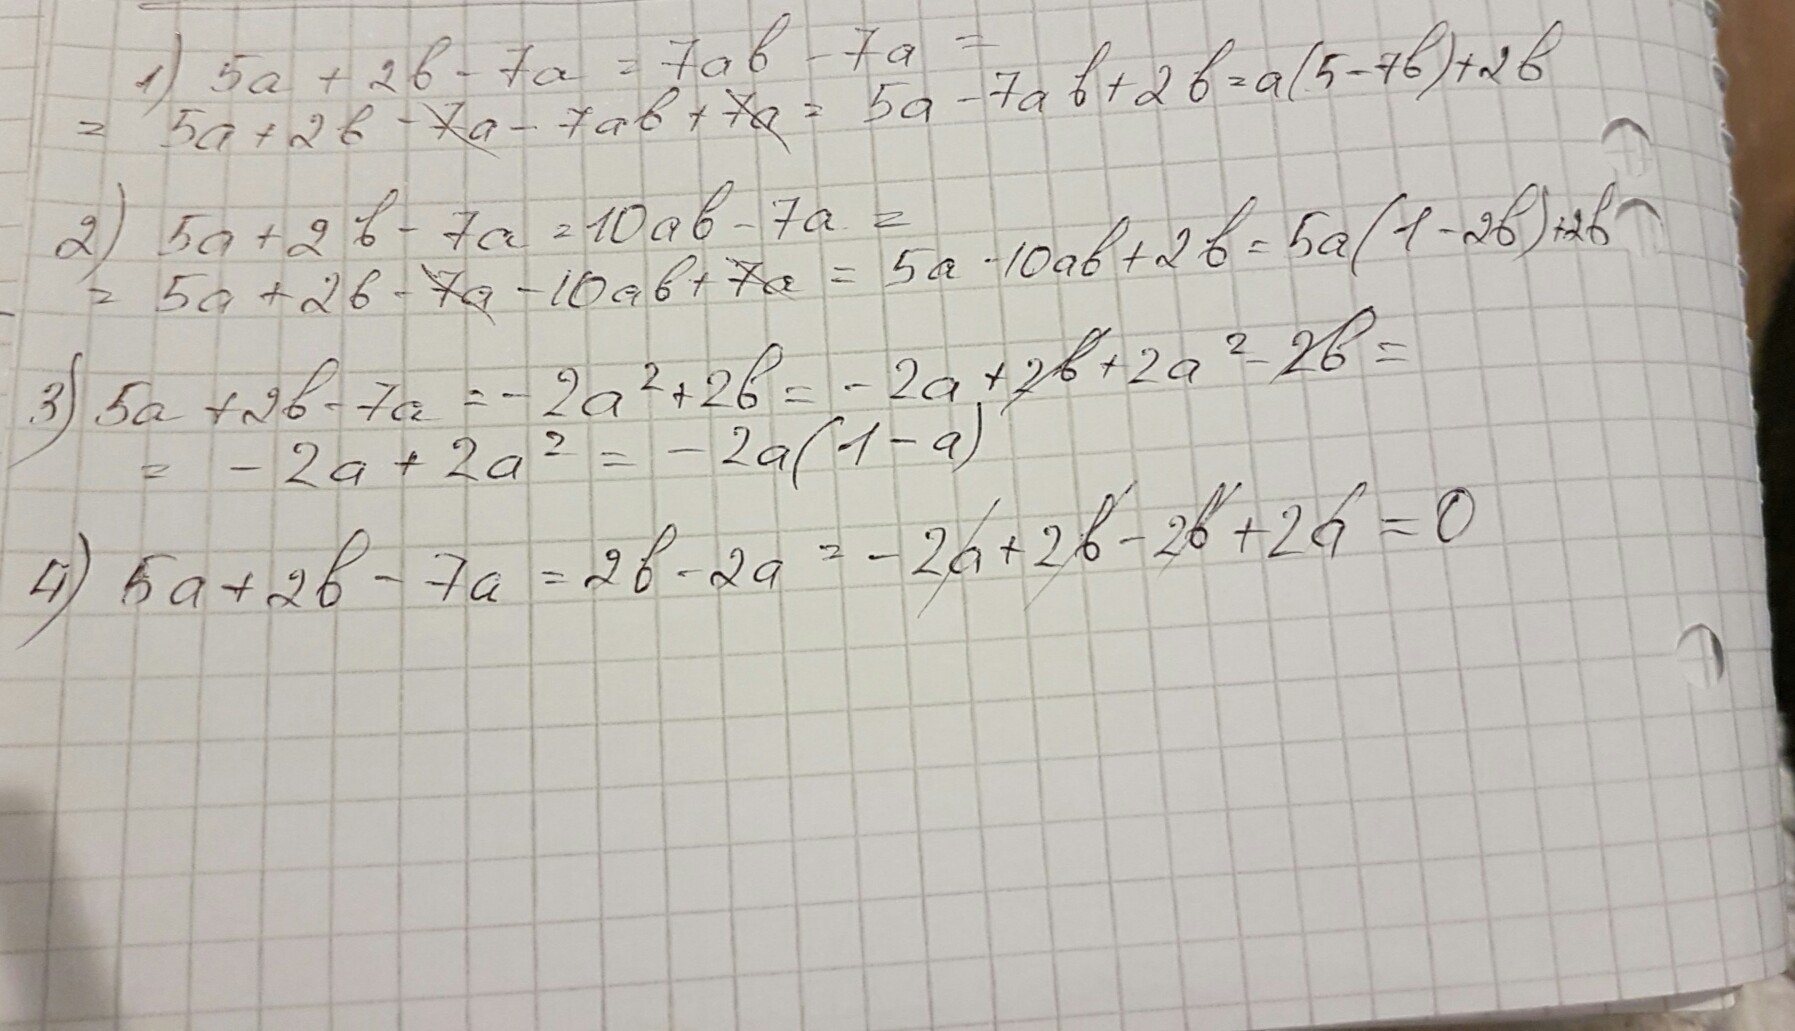 1) 5a + 2b - 7a = 7ab - 7a =
= 5a + 2b - 7a - 7ab + 7a = 5a - 7ab + 2b = a(5-7b)+2b
2) 5a + 2b - 7a = 10ab - 7a =
= 5a + 2b - 7a - 10ab + 7a = 5a - 10ab + 2b = 5a(1-2b)+2b
3) 5a + 2b - 7a = -2a² + 2b = -2a + 2b + 2a² - 2b =
= -2a + 2a² = -2a(1-a)
4) 5a + 2b - 7a = 2b - 2a = -2a + 2b - 2b + 2a = 0